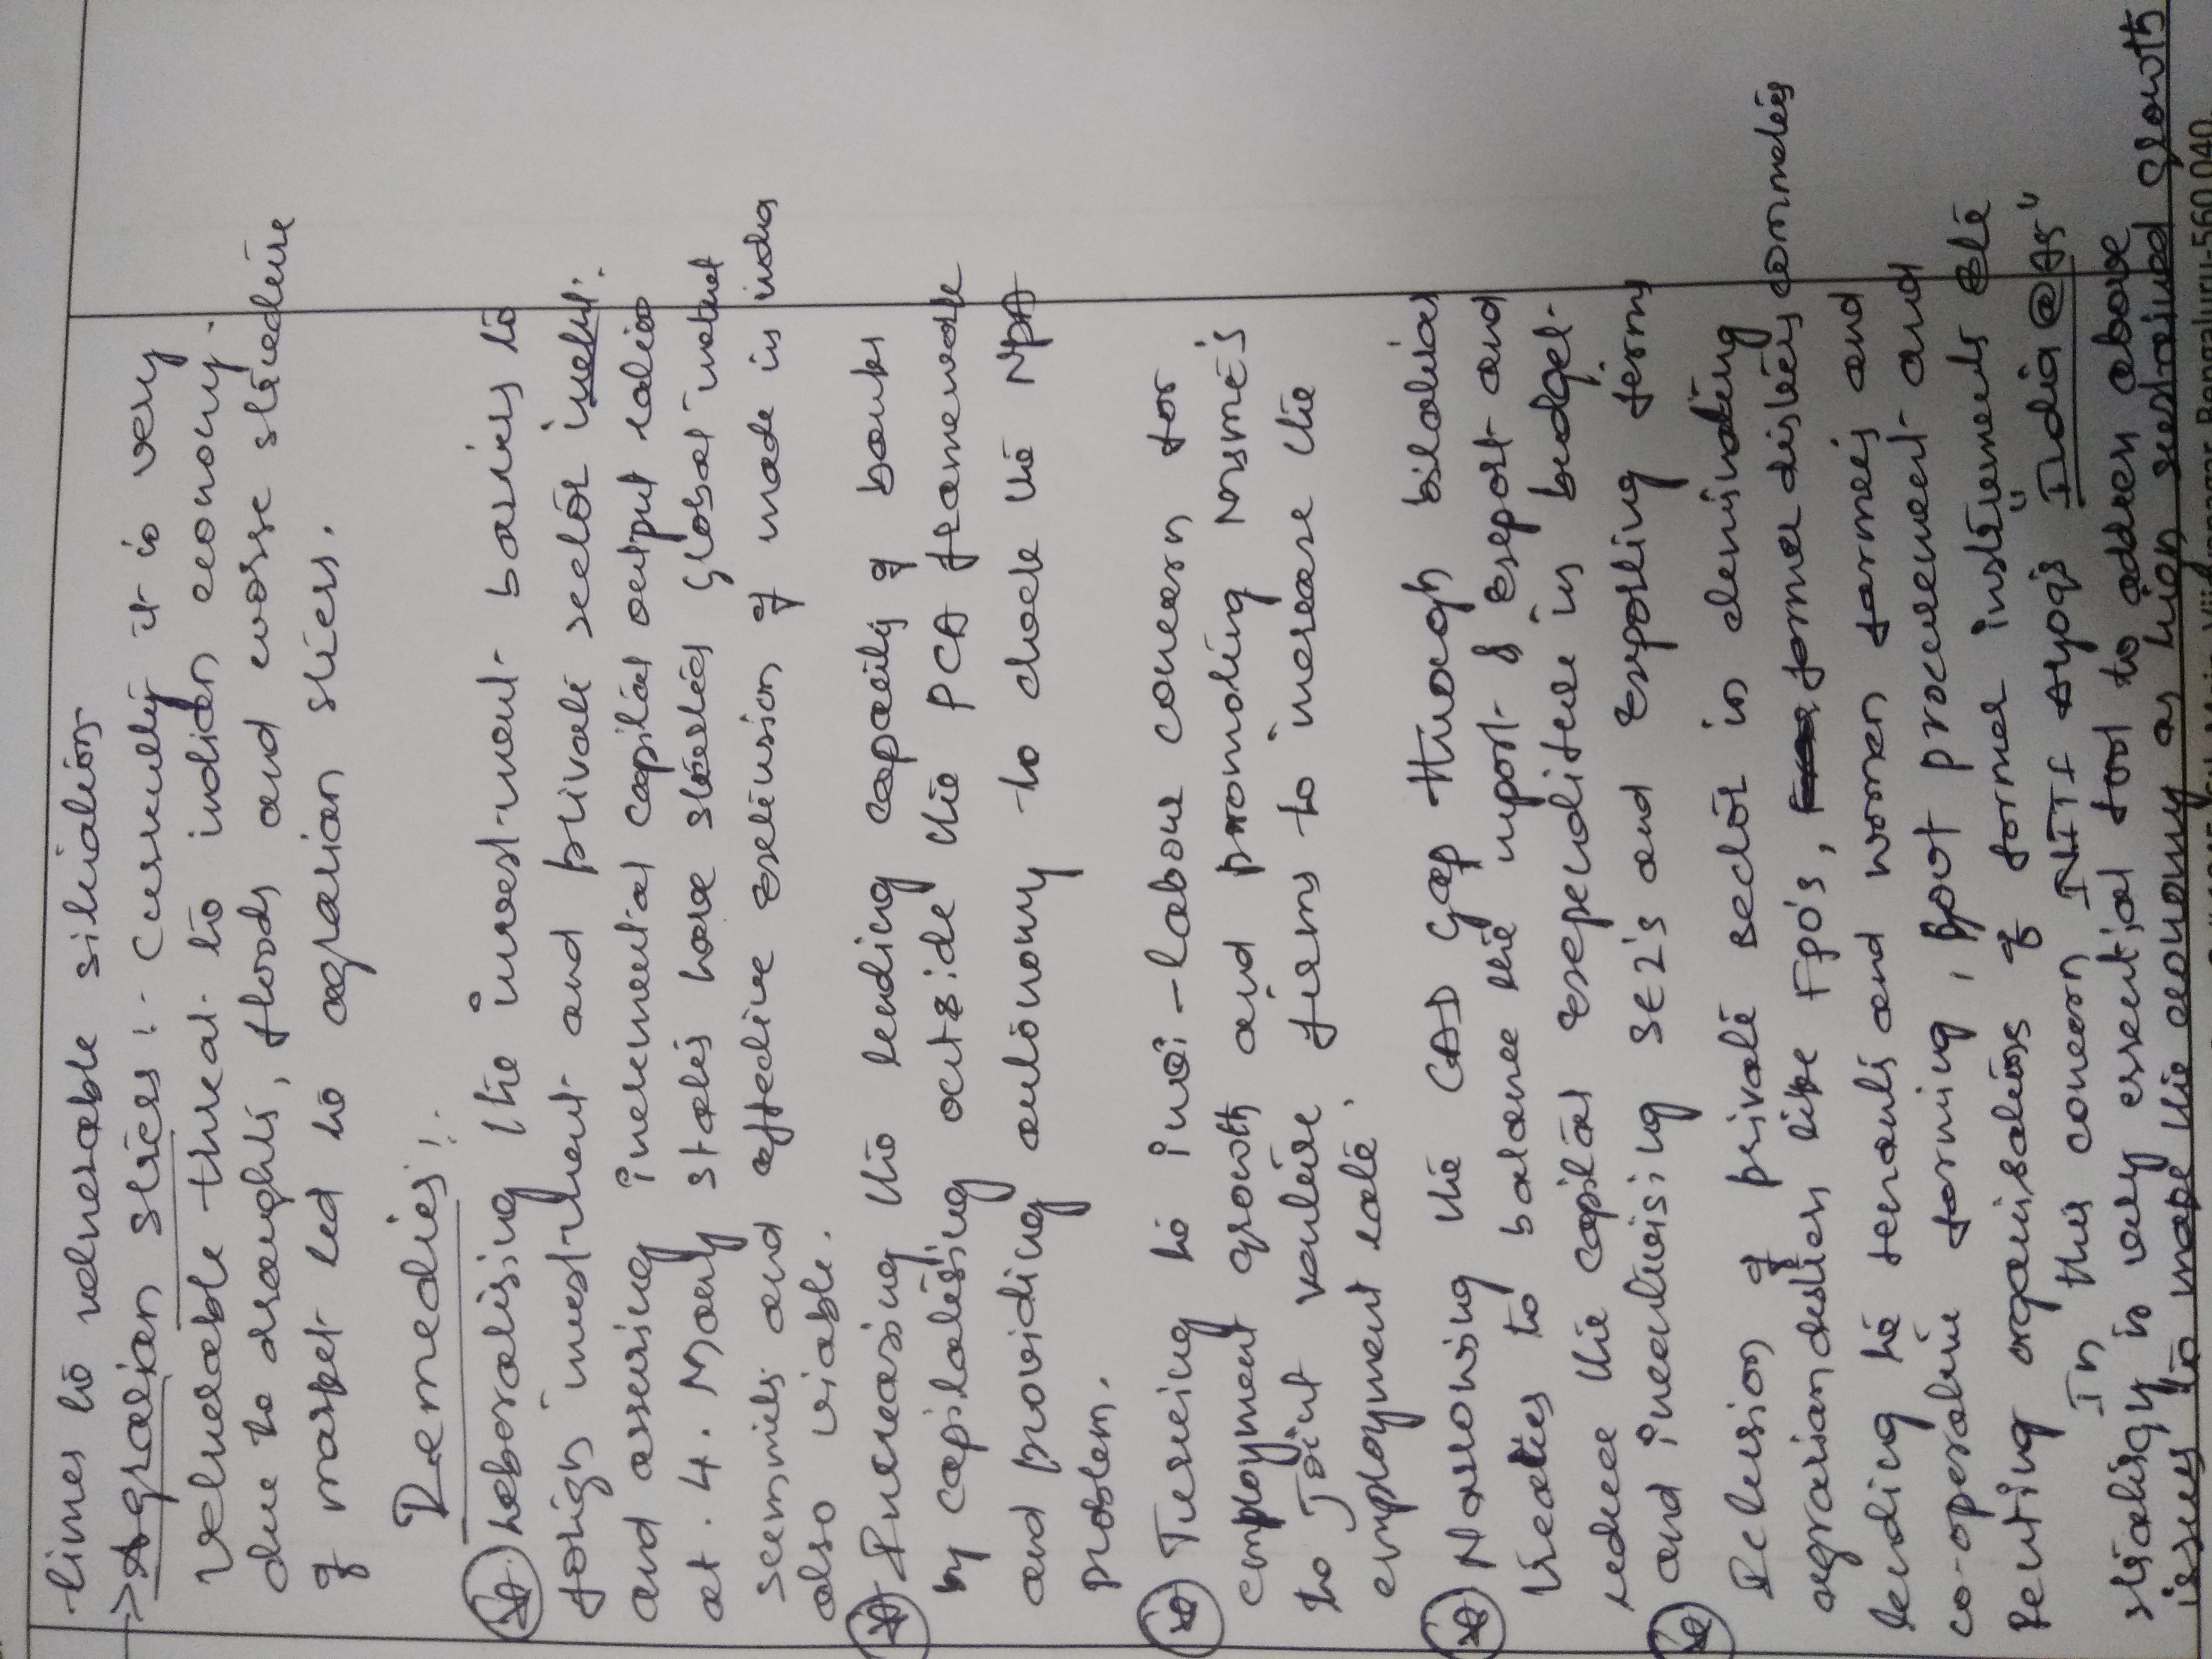 times to vulnerable situation
→ Agrarian stress :- Currently it is very
vulnerable threat to indian economy.
due to draughts, floods and worse structure
of market led to agrarian stress.
Remedies :-
Leboralising the invest-ment bariers to
foriegn investment and private sector
and assuring incremental capital output ratio
at 4. Many states have started global investment
summits and effective extension of make in india
also viable.
Increasing the lending capacity of banks
by capitalising outside the PCA framework
and providing autonomy to check the NPA
problem.
Turning to -labour concern for
employment growth and promoting MSME'S
to Joint venture firms to increase the
employment rate.
Narrowing the CAD gap through bilatiral
treaties to balance the import & export and
reduce the capital expenditure in budget-
and SEZ's and exporting firms
of private sector in
agrarian distress like FPO's, farmer distress
lending to tenants and women farmers and
co-operative farming, Spot procurement and
organisations of farmer instruments etc
In this concern NITI Ayog's "India @ 75"
stratergy is very essential tool to address above
issues to make the economy as high growth
Vijayanagar, Bengaluru-560 040.